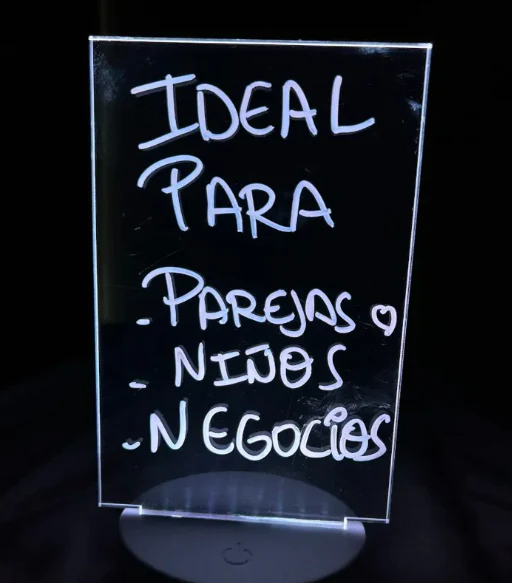 IDEAL
PARA
-PAREJAS ♡
- NIÑOS
-NEGOCIOS